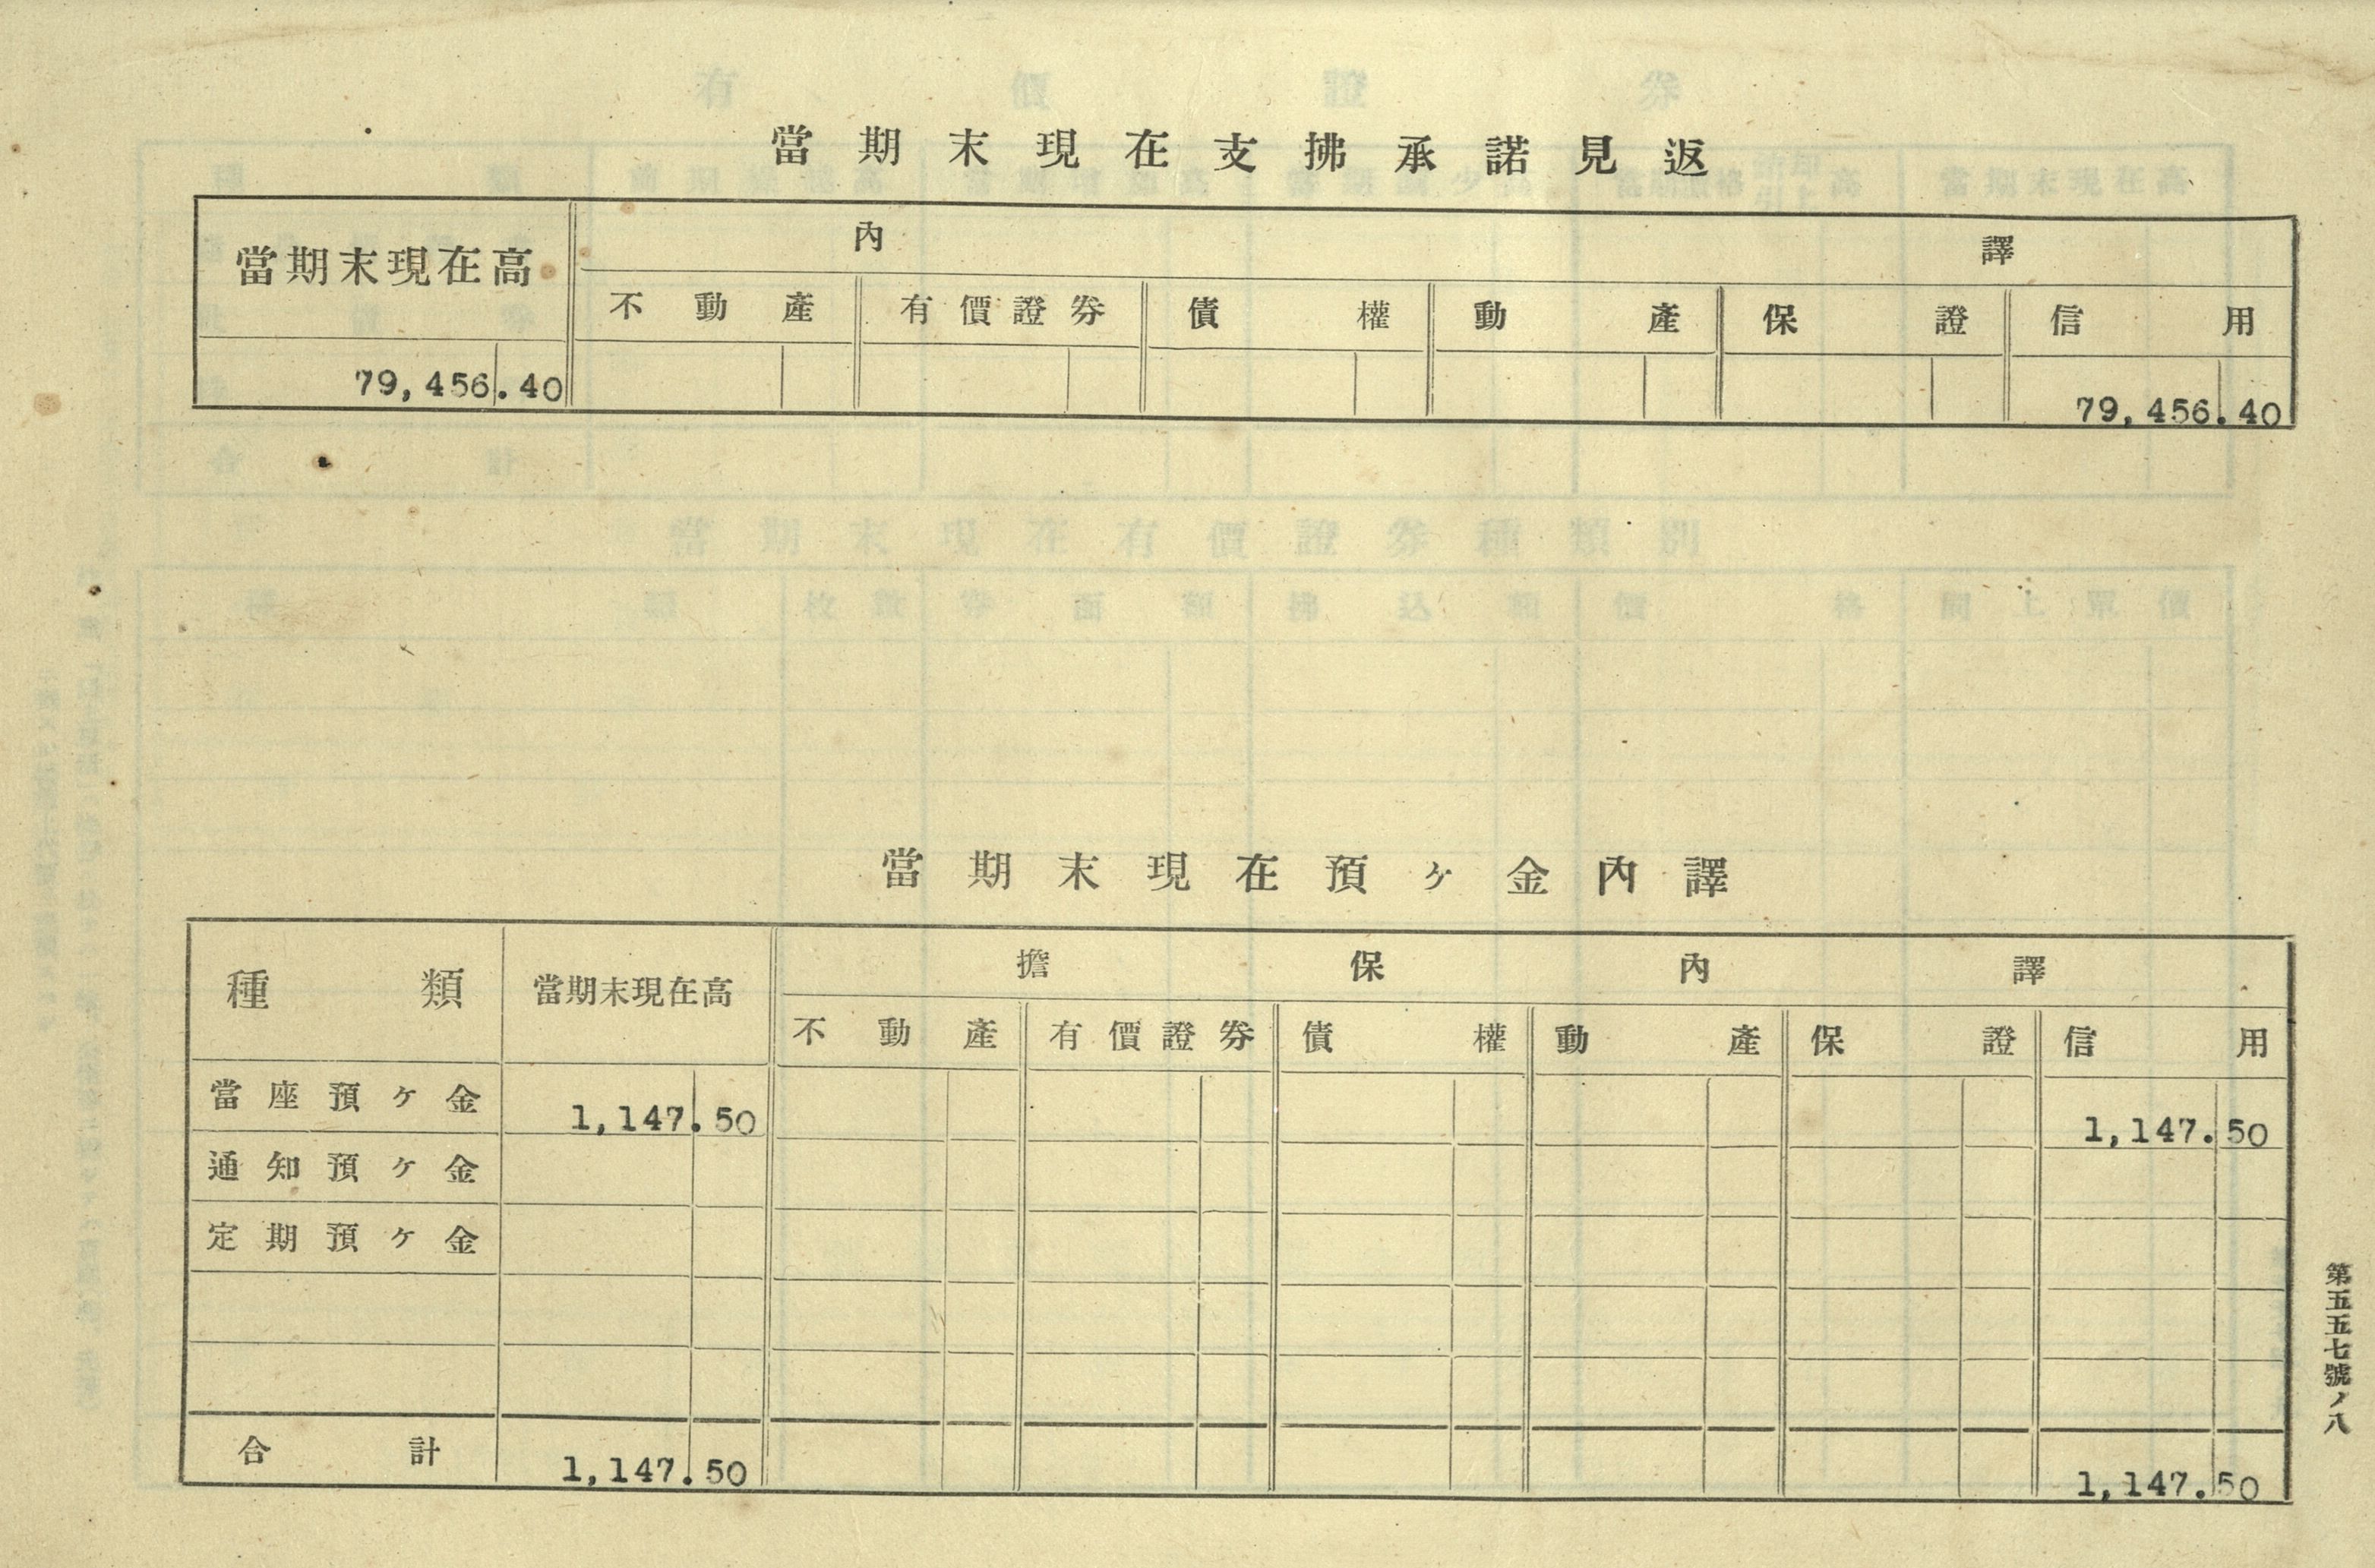 當期末現在支拂承諾見返
當期末現在高 內譯
不動產 有價證券 債權 動產 保證 信用
79,456.40 79,456.40
當期末現在預ヶ金內譯
種類 當期末現在高 擔保內譯
不動產 有價證券 債權 動產 保證 信用
當座預ヶ金 1,147.50 1,147.50
通知預ヶ金
定期預ヶ金
合計 1,147.50 1,147.50
第五五七號ノ八